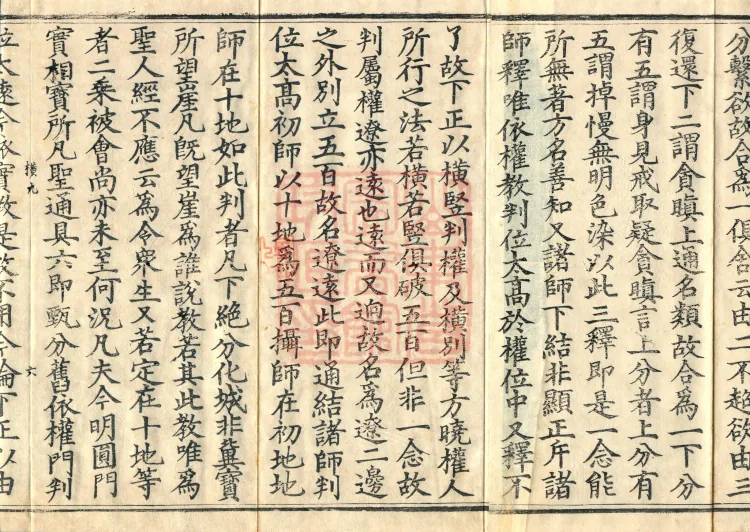 分繫欲故合為一俱舍云由二不超欲由三
復還下二謂貪瞋上通名類故合為一下分
有五謂身見戒取疑貪瞋言上分者上分有
五謂掉慢無明色染以此三釋即是一念能
所無著方名善知又諸師下結非顯正斥諸
師釋唯依權教判位太高於權位中又釋不
了故下正以橫竪判權及橫別等方曉權人
所行之法若橫若竪俱破五百但非一念故
判屬權遼亦遠也遠而又逈故名為遼二邊
之外別立五百故名遼遠此即通結諸師判
位太髙初師以十地為五百攝師在初地地
師在十地如此判者凡下絕分化城非真寶
所望崖凡旣望崖為誰說教若其此教唯為
聖人經不應云為令眾生又若定在十地等
者二乘被會尚亦未至何況凡夫今明圓門
實相寶所凡聖通具六即甄分舊依權門判
橫九
六
位太遠今依實教是故不用今論下正以由